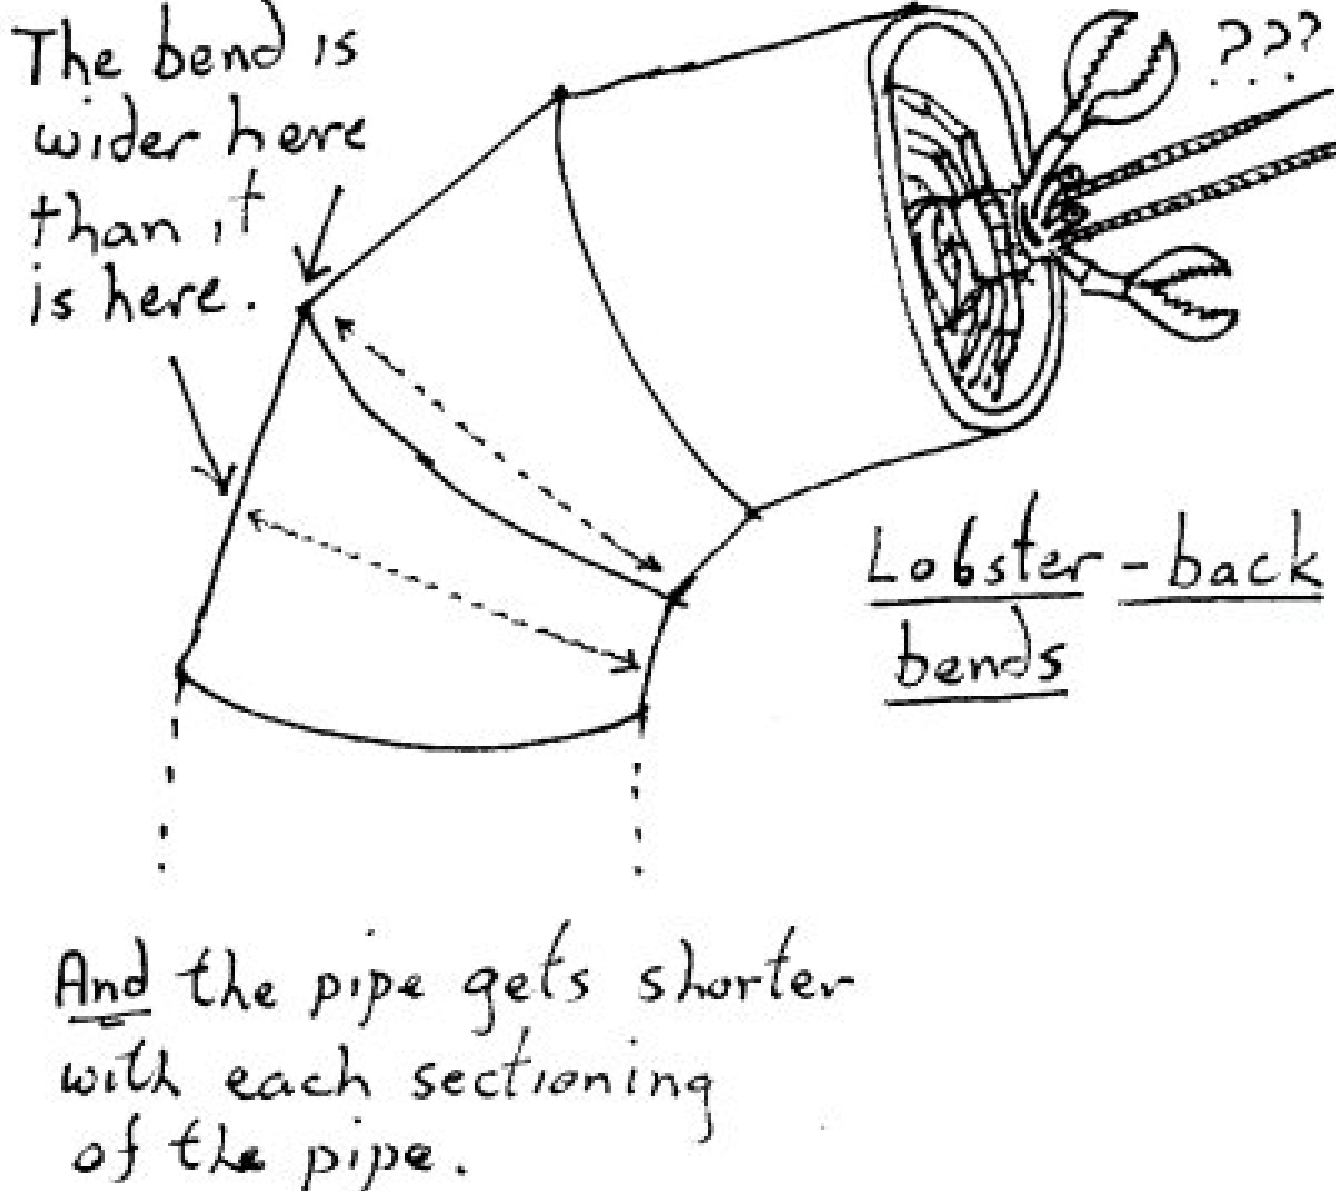 The bend is
wider here
than it
is here.
???
Lobster-back
bends
And the pipe gets shorter
with each sectioning
of the pipe.